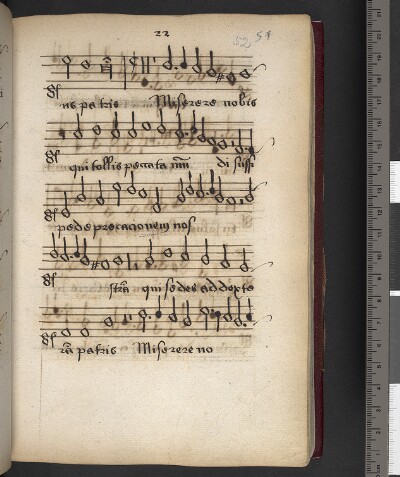 22
52 51
us patris Miserere nobis
qui tollis peccata di sussi
pe deprecacionem nos
strā qui sedes ad dexte
rā patris Miserere no